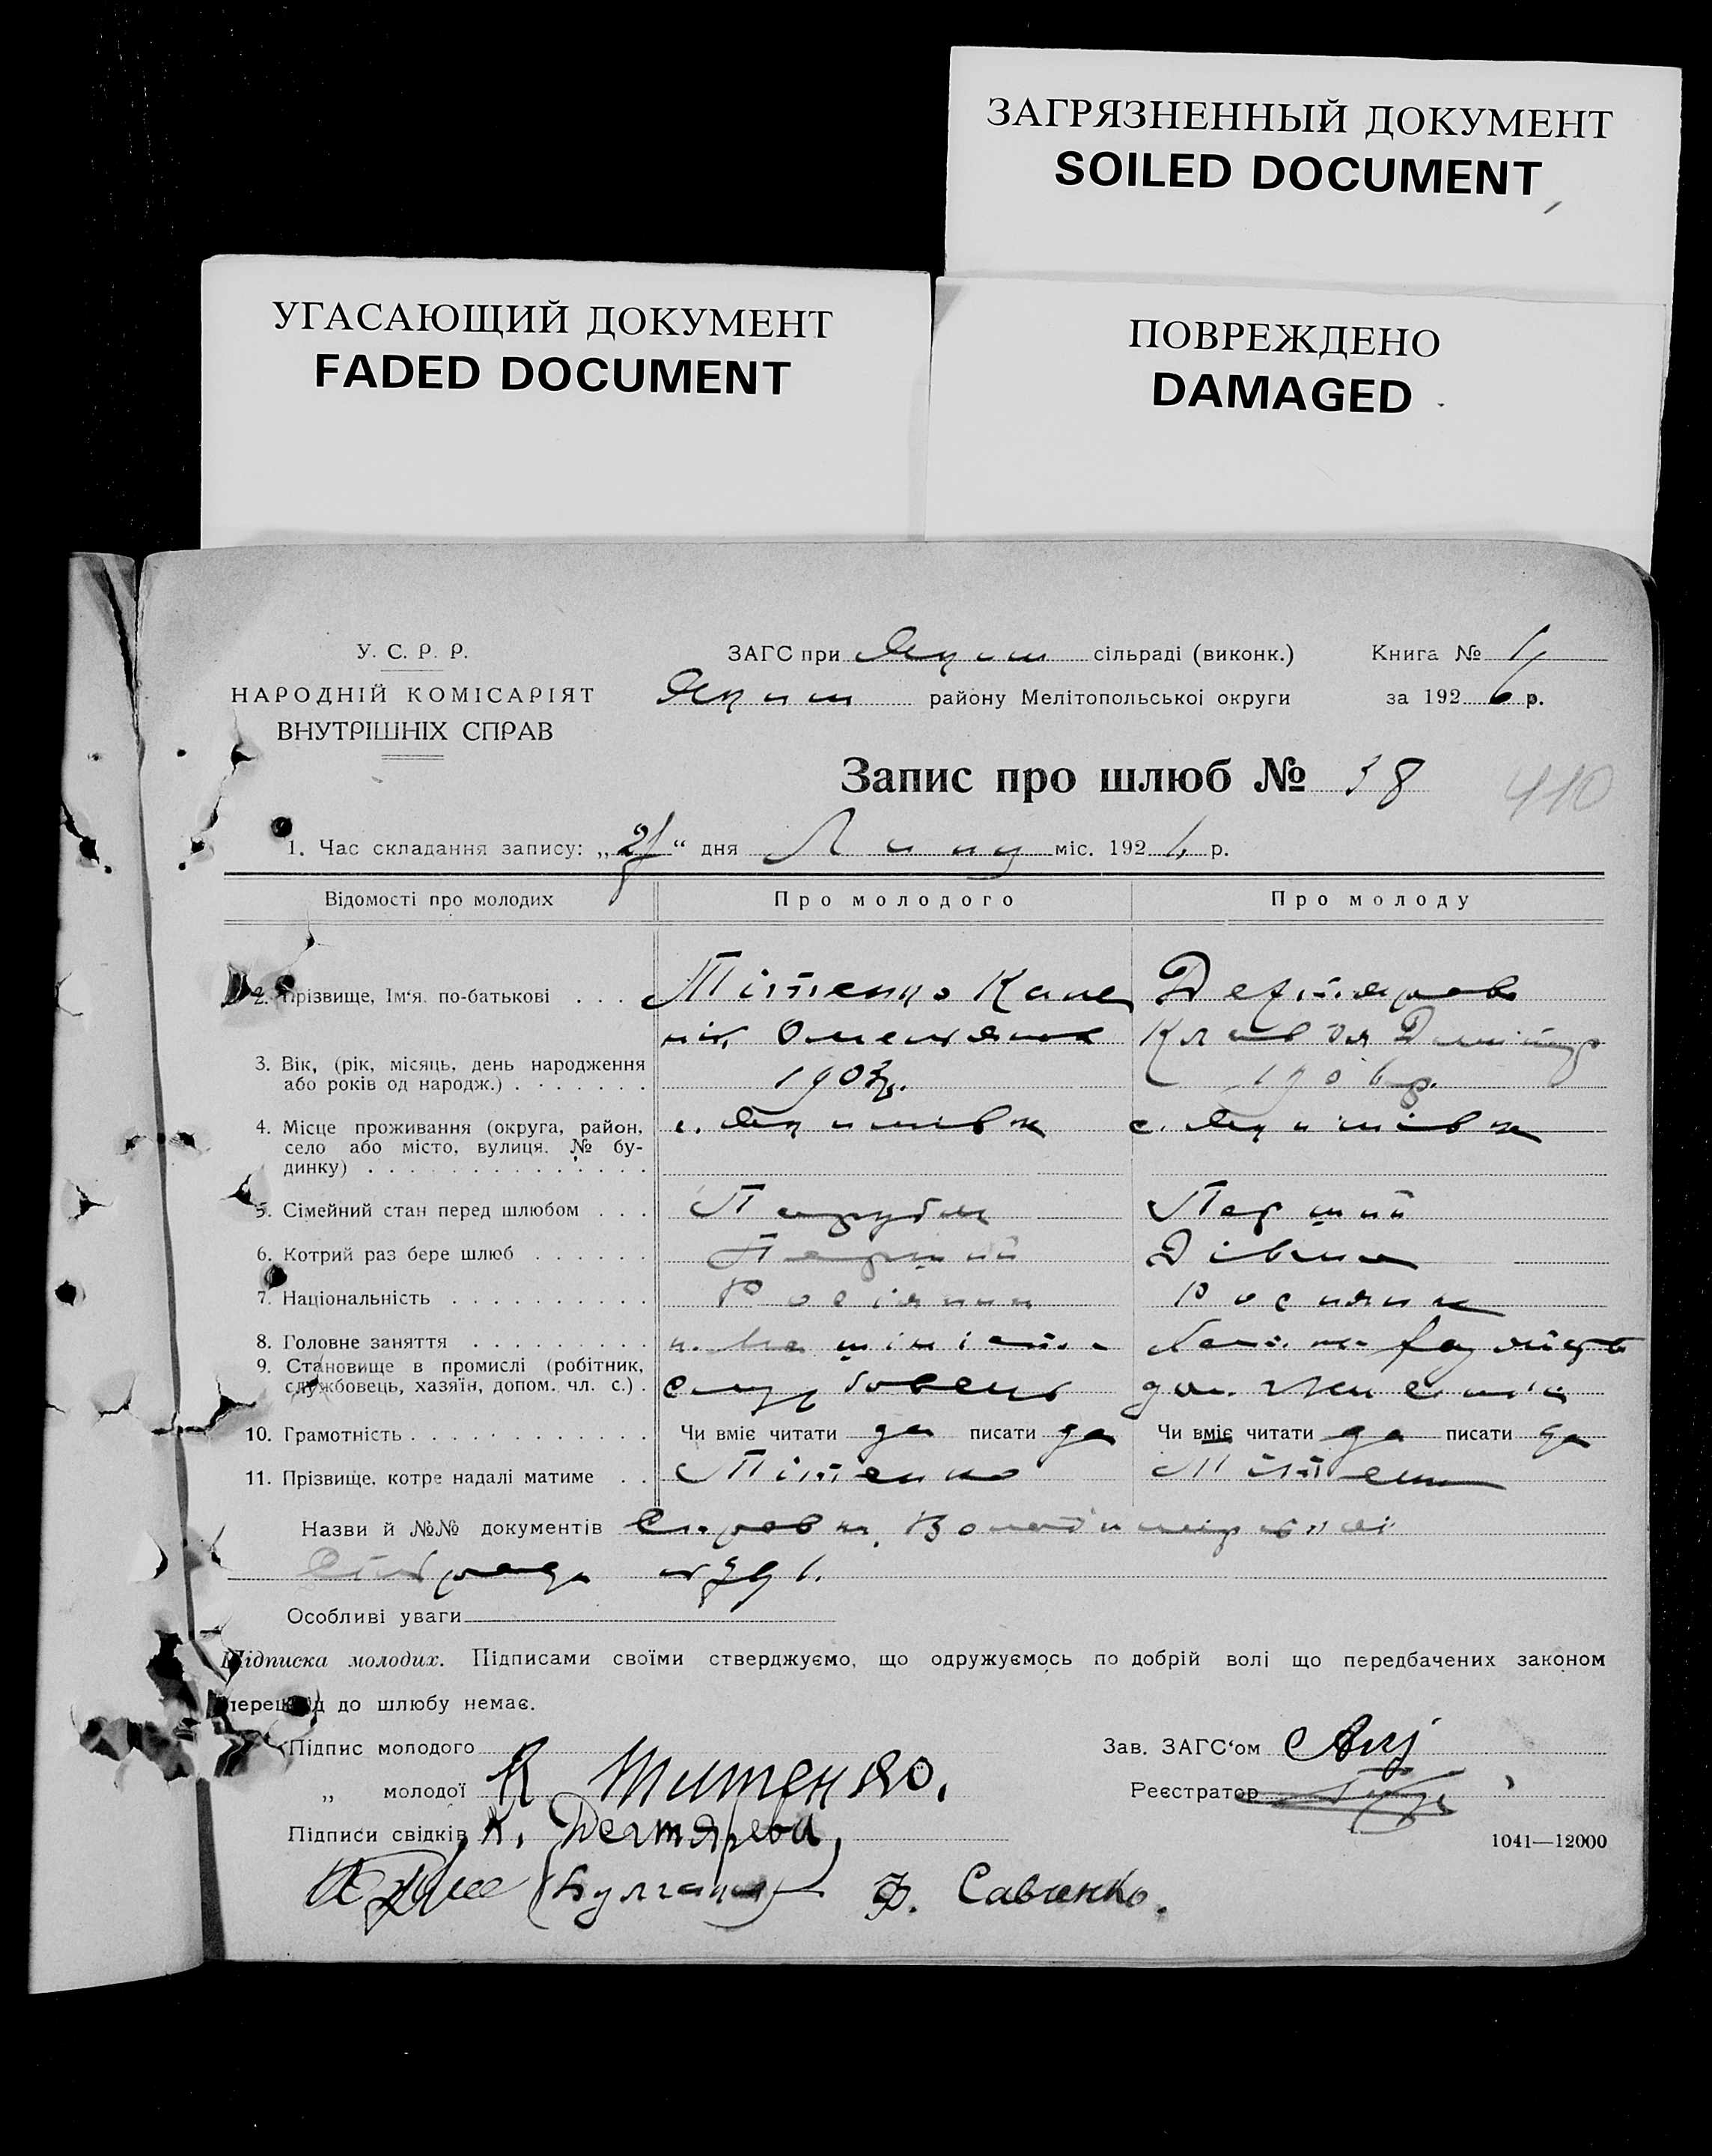 ЗАГРЯЗНЕННЫЙ ДОКУМЕНТ
SOILED DOCUMENT
УГАСАЮЩИЙ ДОКУМЕНТ
FADED DOCUMENT
ПОВРЕЖДЕНО
DAMAGED
У. С. Р. Р.
НАРОДНІЙ КОМІСАРІЯТ
ВНУТРІШНІХ СПРАВ
ЗАГС при Яким сільраді (виконк.)
Яким району Мелітопольської округи
Книга №
за 1926 р.
Запис про шлюб № 38
410
1. Час складання запису: „ “ дня Липц міс. 192 р.
Відомості про молодих
Про молодого
Про молоду
2. Прізвище, Ім'я, по-батькові . . . Тітенко Дегтярова
Омелянов Клавдія Дмитр
3. Вік, (рік, місяць, день народження
або років од народж.) . . . . . . . 1906 р.
4. Місце проживання (округа, район, с. Якимівка с. Якимівка
село або місто, вулиця. № бу-
динку) . . . . . . . . . . . . . .
5. Сімейний стан перед шлюбом . . . Парубок Перший
6. Котрий раз бере шлюб . . . . . . Перший Дівиця
7. Національність . . . . . . . . . . Росіянин Росиянка
8. Головне заняття . . . . . . . . .
9. Становище в промислі (робітник,
службовець, хазяїн, допом. чл. с.) . службовець
10. Грамотність . . . . . . . . . . . . Чи вміє читати да писати да Чи вміє читати да писати да
11. Прізвище, котре надалі матиме . . Тітенко Тітенко
Назви й №№ документів Справка Володимирівської
Сільради
Особливі уваги
Підписка молодих. Підписами своїми стверджуємо, що одружуємось по добрій волі що передбачених законом
перешкод до шлюбу немає.
Підпис молодого
„ молодої К Титенко.
Підписи свідків К. Дегтярева,
Зав. ЗАГС'ом
Реєстратор
1041—12000
Ф. Савченко.